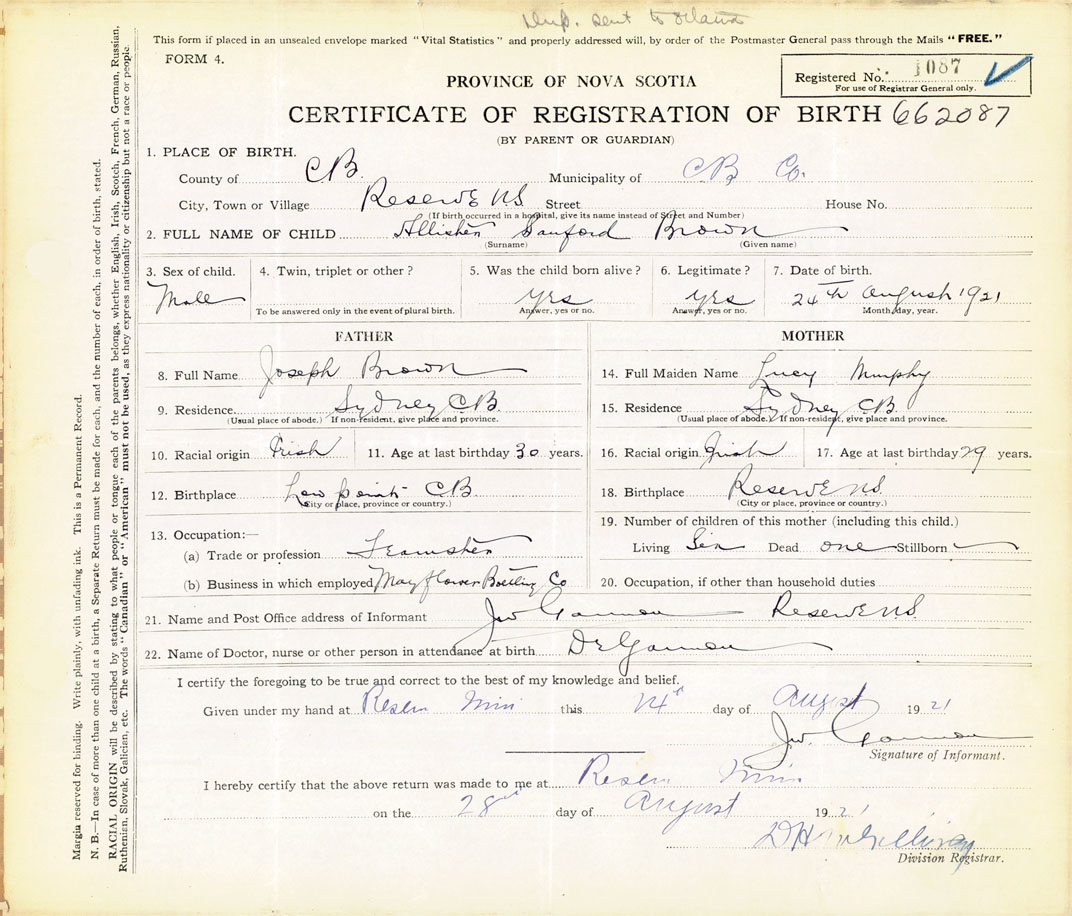 Dup. sent to
This form if placed in an unsealed envelope marked "Vital Statistics" and properly addressed will, by order of the Postmaster General pass through the Mails "FREE."
FORM 4.
Registered No. 1087
For use of Registrar General only.
PROVINCE OF NOVA SCOTIA
CERTIFICATE OF REGISTRATION OF BIRTH 662087
(BY PARENT OR GUARDIAN)
1. PLACE OF BIRTH.
County of CB Municipality of CB Co.
City, Town or Village Reserve NS Street House No.
(If birth occurred in a hospital, give its name instead of Street and Number)
2. FULL NAME OF CHILD Allister Sanford Brown
(Surname) (Given name)
3. Sex of child. 4. Twin, triplet or other? 5. Was the child born alive? 6. Legitimate? 7. Date of birth.
Male yes yes 24th August 1921
To be answered only in the event of plural birth. Answer, yes or no. Answer, yes or no. Month, day, year.
FATHER MOTHER
8. Full Name Joseph Brown 14. Full Maiden Name Lucy Murphy
9. Residence Sydney CB. 15. Residence Sydney CB.
(Usual place of abode.) If non-resident, give place and province. (Usual place of abode.) If non-resident, give place and province.
10. Racial origin Irish 11. Age at last birthday 30 years. 16. Racial origin Irish 17. Age at last birthday 29 years.
12. Birthplace Low point CB 18. Birthplace Reserve NS.
(City or place, province or country.) (City or place, province or country.)
13. Occupation:— 19. Number of children of this mother (including this child.)
(a) Trade or profession Teamster Living Six Dead one Stillborn
(b) Business in which employed Mayflower Bottling Co 20. Occupation, if other than household duties
21. Name and Post Office address of Informant Reserve NS
22. Name of Doctor, nurse or other person in attendance at birth Dr
I certify the foregoing to be true and correct to the best of my knowledge and belief.
Given under my hand at this day of August 1921
Signature of Informant.
I hereby certify that the above return was made to me at
on the 28th day of August 1921
D H McGillivray
Division Registrar.
Margin reserved for binding. Write plainly, with unfading ink. This is a Permanent Record.
N. B.—In case of more than one child at a birth, a Separate Return must be made for each, and the number of each, in order of birth, stated.
RACIAL ORIGIN will be described by stating to what people or tongue each of the parents belongs, whether English, Irish, Scotch, French, German, Russian,
Ruthenian, Slovak, Galician, etc. The words "Canadian" or "American" must not be used, as they express nationality or citizenship but not a race or people.